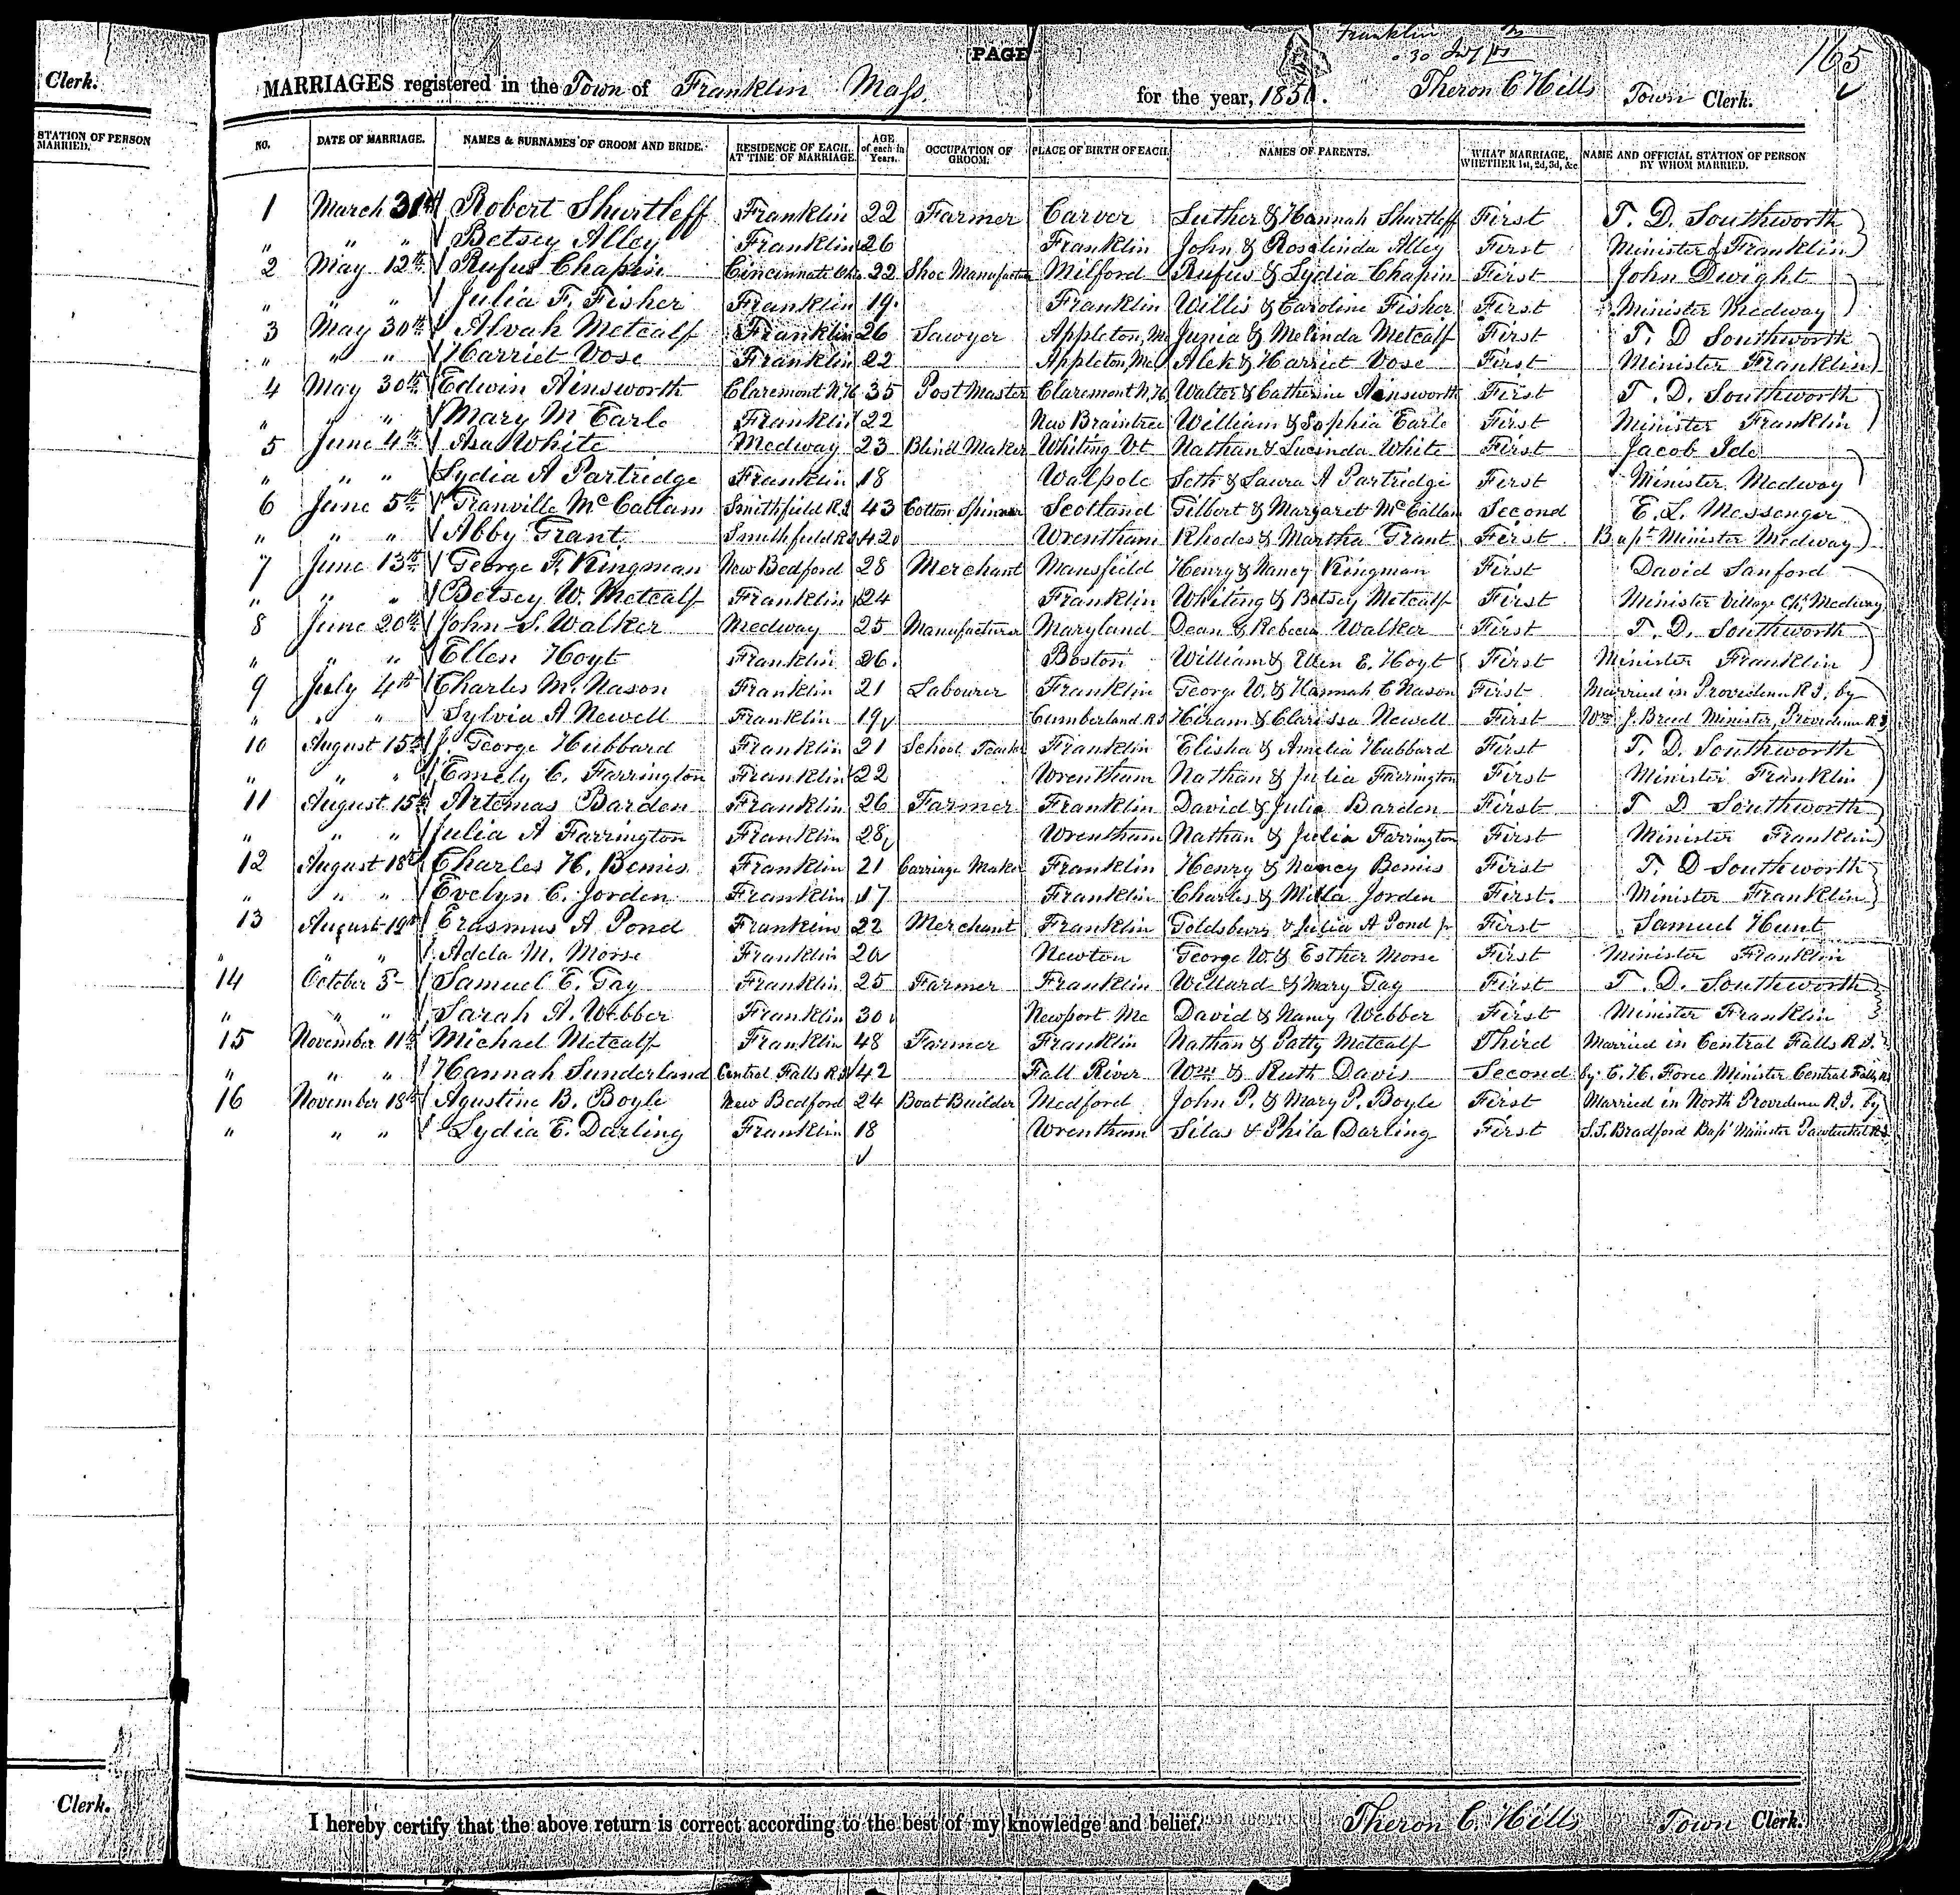 Clerk.
STATION OF PERSON
MARRIED.
Clerk.
PAGE
Franklin
165
MARRIAGES registered in the Town of Franklin Mass. for the year, 1850. Theron C Hills Town Clerk.
NO. DATE OF MARRIAGE. NAMES & SURNAMES OF GROOM AND BRIDE. RESIDENCE OF EACH AT TIME OF MARRIAGE. AGE of each in Years. OCCUPATION OF GROOM. PLACE OF BIRTH OF EACH. NAMES OF PARENTS. WHAT MARRIAGE, WHETHER 1st, 2d, 3d, &c. NAME AND OFFICIAL STATION OF PERSON BY WHOM MARRIED.
1 March 31st Robert Shurtleff Franklin 22 Farmer Carver Luther & Hannah Shurtleff First T. D. Southworth
" " " Betsey Alley Franklin 26 Franklin John & Rosalinda Alley First Minister of Franklin
2 May 12th Rufus Chapin Cincinnati Ohio 22 Shoe Manufacturer Milford Rufus & Lydia Chapin First John Dwight
" " " Julia F. Fisher Franklin 19. Franklin Willis & Caroline Fisher First Minister Medway
3 May 30th Alvah Metcalf Franklin 26 Sawyer Appleton, Me Junia & Melinda Metcalf First T. D Southworth
" " " Harriet Vose Franklin 22 Appleton, Me Alek & Harriet Vose First Minister Franklin
4 May 30th Edwin Ainsworth Claremont N.H. 35 Post Master Claremont N.H. Walter & Catherine Ainsworth First T. D. Southworth
" " " Mary M Earle Franklin 22 New Braintree William & Sophia Earle First Minister Franklin
5 June 4th Asa White Medway 23 Blind Maker Whiting Vt Nathan & Lucinda White First Jacob Ide
" " " Lydia A Partridge Franklin 18 Walpole Seth & Laura A Partridge First Minister Medway
6 June 5th Granville McCallam Smithfield R.I. 43 Cotton Spinner Scotland Gilbert & Margaret McCallam Second E. L. Messenger
" " " Abby Grant. Smithfield R.I. 42 Wrentham Rhodes & Martha Grant First Bapt Minister Medway
7 June 13th George F. Kingman New Bedford 28 Merchant Mansfield Henry & Nancy Kingman First David Sanford
" " " Betsey W. Metcalf Franklin 24 Franklin Whiting & Betsey Metcalf First Minister Village Ch. Medway
8 June 20th John S. Walker Medway 25 Manufacturer Maryland Dean & Rebecca Walker First T. D. Southworth
" " " Ellen Hoyt Franklin 26. Boston William & Ellen E. Hoyt First Minister Franklin
9 July 4th Charles M. Nason Franklin 21 Labourer Franklin George W. & Hannah C Nason First Married in Providence R.I. by
" " " Sylvia A Newell Franklin 19 Cumberland R.I Hiram & Clarissa Newell First Wm J. Breed Minister, Providence R.I
10 August 15th J. George Hubbard Franklin 21 School Teacher Franklin Elisha & Amelia Hubbard First T. D. Southworth
" " " Emely C. Farrington Franklin 22 Wrentham Nathan & Julia Farrington First Minister Franklin
11 August 15th Artemas Barden Franklin 26 Farmer Franklin David & Julia Barden First T D Southworth
" " " Julia A Farrington Franklin 28 Wrentham Nathan & Julia Farrington First Minister Franklin
12 August 18th Charles H. Bemis Franklin 21 Carriage Maker Franklin Henry & Nancy Bemis First T. D Southworth
" " " Evelyn C. Jorden Franklin 17 Franklin Charles & Milla Jorden First. Minister Franklin
13 August 19th Erasmus A Pond Franklin 22 Merchant Franklin Goldsbury & Julia A Pond Jr First Samuel Hunt
" " " Adela M. Morse Franklin 20 Newton George W. & Esther Morse First Minister Franklin
14 October 3- Samuel E. Gay Franklin 25 Farmer Franklin Willard & Mary Gay First T. D. Southworth
" " " Sarah A. Webber Franklin 30 Newport Me David & Nancy Webber First Minister Franklin
15 November 11th Michael Metcalf Franklin 48 Farmer Franklin Nathan & Patty Metcalf Third Married in Central Falls R.I.
" " " Hannah Sunderland Central Falls R.I 42 Fall River Wm & Ruth Davis Second by C. H. Force Minister Central Falls R.I
16 November 18th Agustine B. Boyle New Bedford 24 Boat Builder Medford John P. & Mary P. Boyle First Married in North Providence R.I. by
" " " Lydia E. Darling Franklin 18 Wrentham Silas & Phila Darling First S.S. Bradford Bapt Minister Pawtucket R.I
I hereby certify that the above return is correct according to the best of my knowledge and belief. Theron C. Hills Town Clerk.